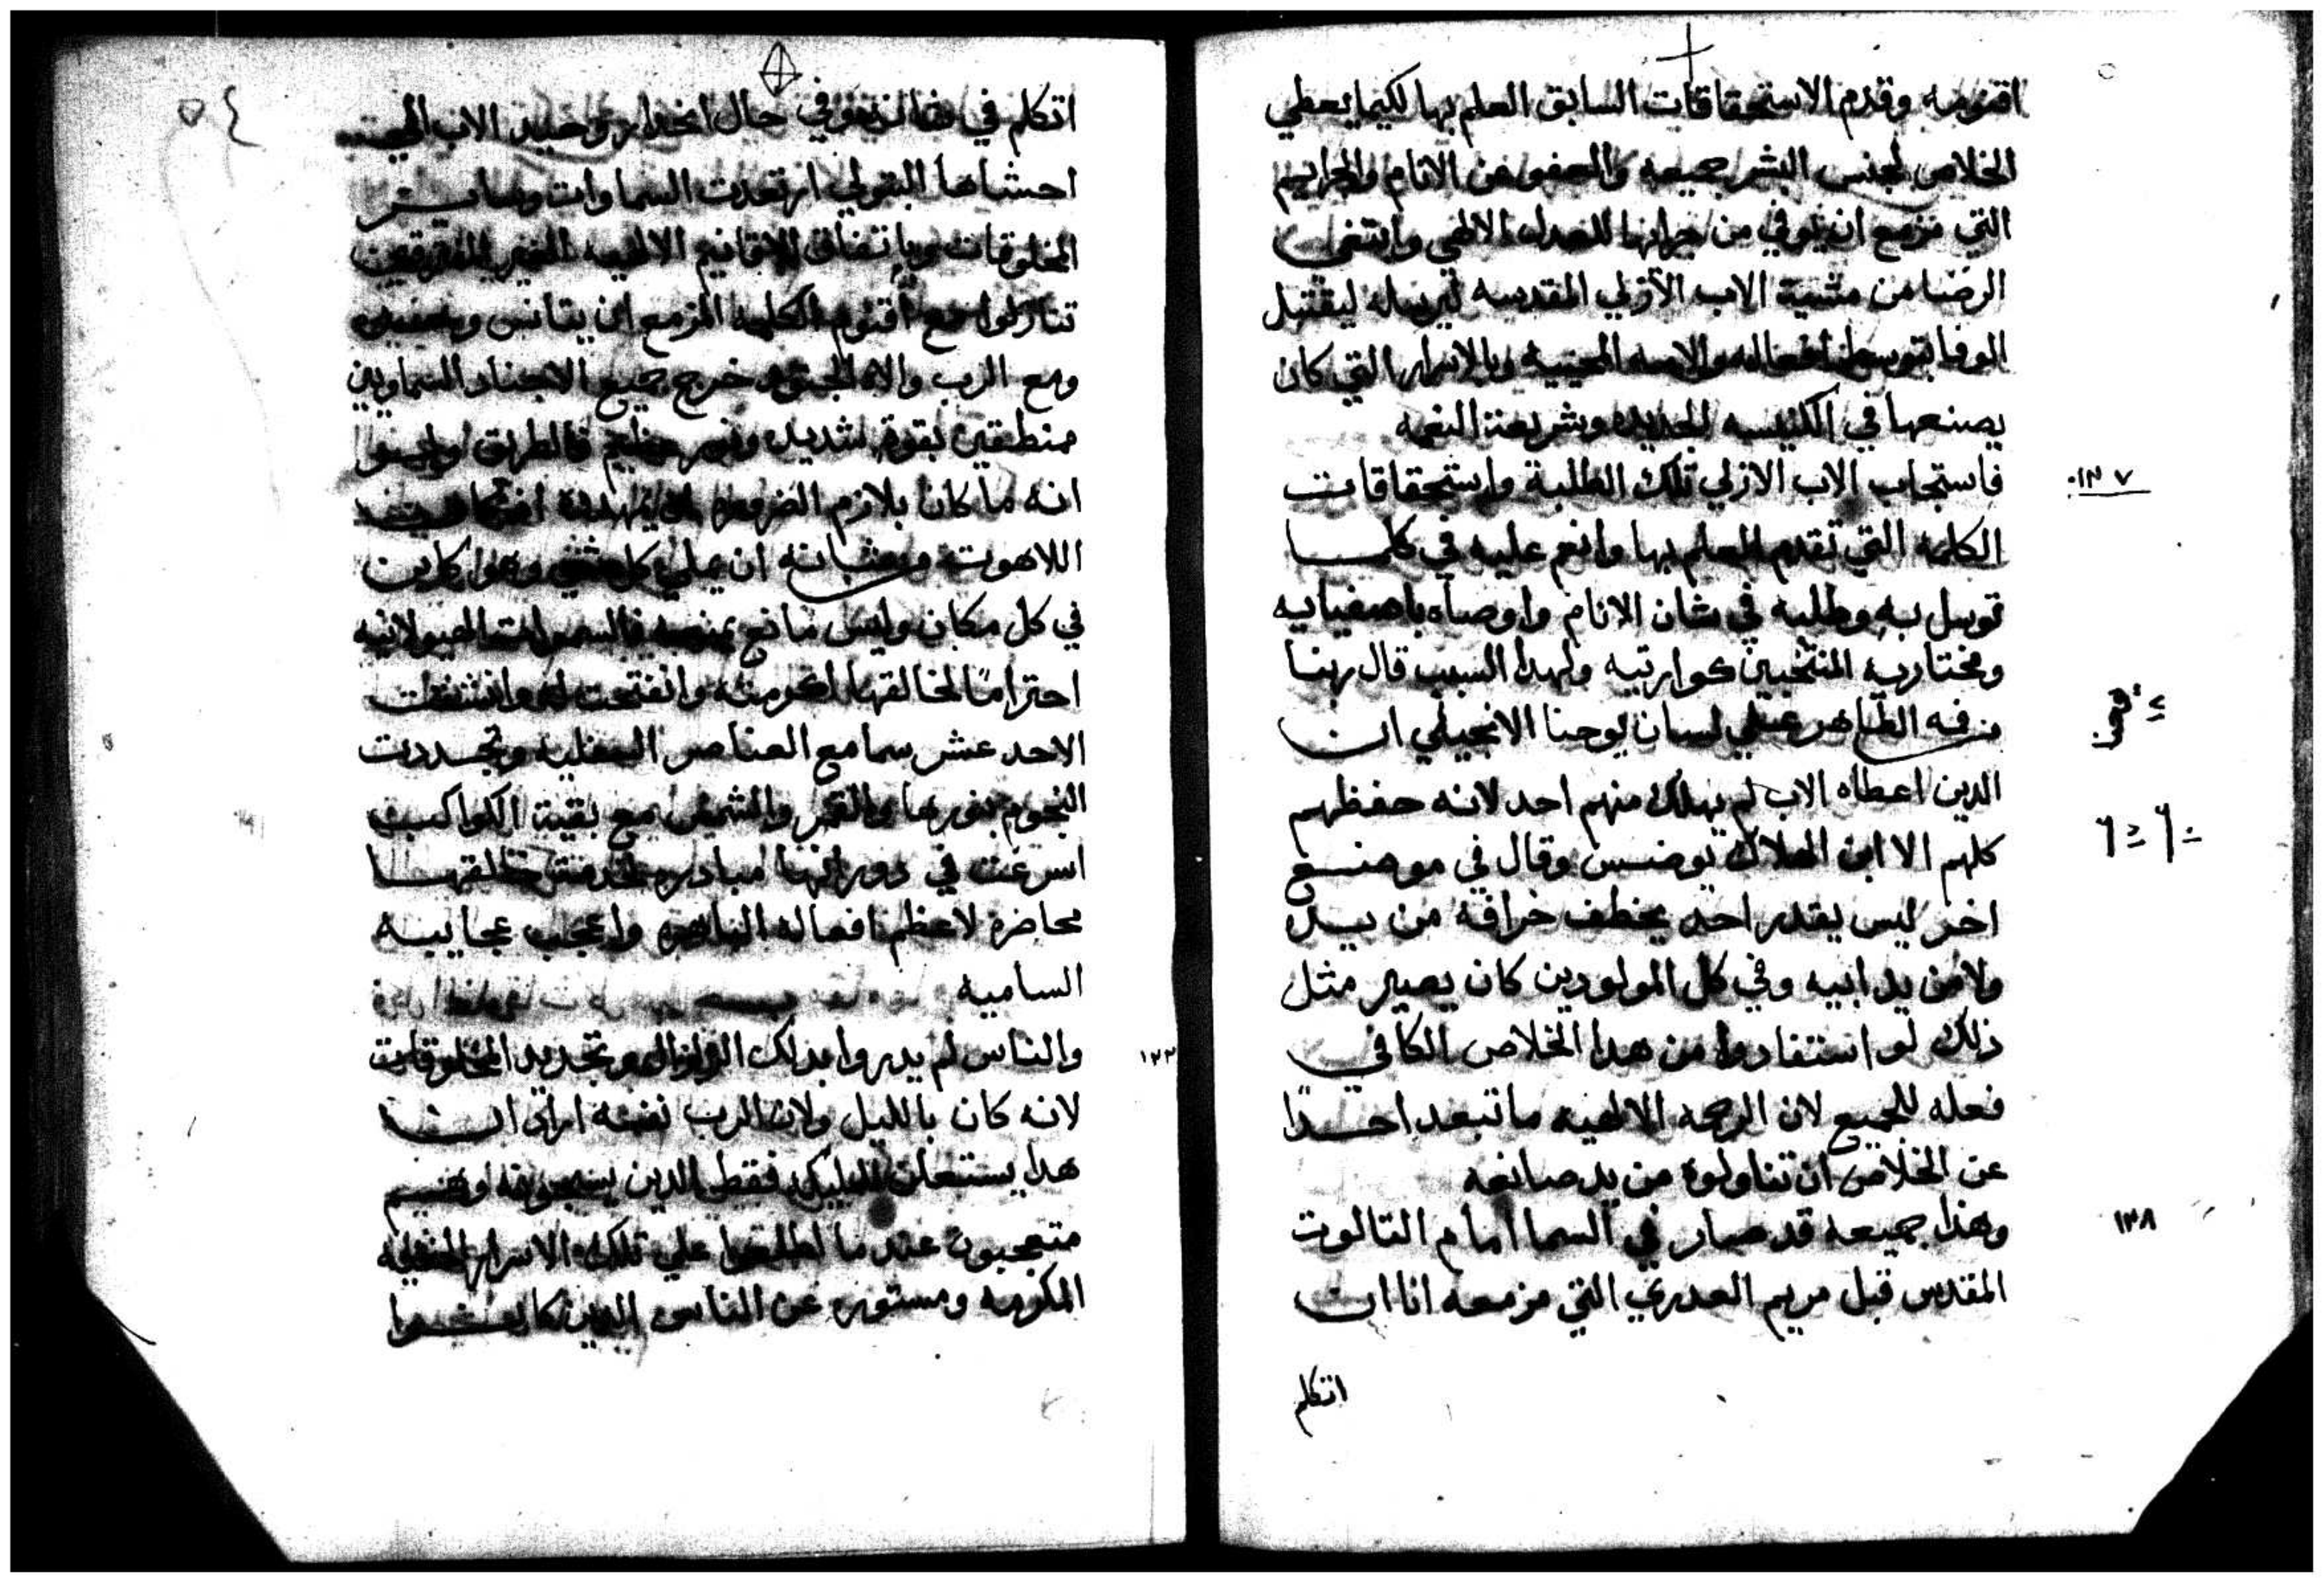 اقنومه وقدم الاستحقاقات السابق العلم بها لكيما يعطي
الخلاص لجنس البشر جميعه والعفو عن الاثام والجرايم
التي مزمع ان يوفي من جرايها للعدل الالهي وابتغى
الرضا من مشية الاب الازلي المقدسه ليرسله ليقتبل
الوفا بتوسط افعاله والامه المحييه وبالاسرار التي كان
يصنعها في الكنيسه الجديده وشريعة النعمه
١٣٧
فاستجاب الاب الازلي تلك الطلبة واستحقاقات
الكلمه التي تقدم العلم بها وانعم عليه في كلما
توسل به وطلبه في شان الانام واوصاه باصفيايه
ومختاريه المنتخبين كوارتيه ولهدا السبب قال ربنا
فمه الطاهر علي لسان يوحنا الانجيلي ان
الدين اعطاه الاب لم يهلك منهم احد لانه حفظهم
كلهم الا ابن الهلاك يوضس وقال في موضع
اخر ليس يقدر احد يخطف خرافه من يده
ولا من يد ابيه وفي كل المولودين كان يصير مثل
ذلك لو استفادوا من هدا الخلاص الكافي
فعله للجميع لان الرحمه الالهيه ما تبعد احدًا
عن الخلاص ان تناولوه من يد صانعه
١٣٨
وهذا جميعه قد صار في السما امام التالوت
المقدس قبل مريم العدري التي مزمعه انا ان
اتكلم
٥٤
اتكلم في حال انحدار وحيد الاب الي
احشاها البتولي ارتعدت السماوات وساير
المخلوقات وباتفاق الاقانيم الالهيه الغير المفترقين
تنازلوا مع اقنوم الكلمه المزمع ان يتانس
ومع الرب والاه خرج جميع الاجناد السماويين
منطقين بقوة شديده ونصر عظيم فالطريق
انه ما كان بلازم الضروره
اللاهوت ان يملي كل شي وهو كاين
في كل مكان وليس مانع يمنعه فالسموات الهيولانيه
احترامًا لخالقها اكرمته وانفتحت له وانشقت
الاحد عشر سما مع العناصر السفليه وتجددت
النجوم بنورها والقمر والشمس مع بقيت الكواكب
اسرعت في دورانها مبادره لخدمة خالقها
محاضره لاعظم افعاله الباهره واعجب عجايبه
الساميه
١٣٣
والناس لم يدروا بدلك الزلزال وتجديد المخلوقات
لانه كان بالليل ولان الرب نفسه اراد ان
هدا يستعلن للملايكه فقط الدين يسبحونه وهم
متعجبون عندما اطلعوا علي تلك الاسرار الخفيه
المكرمه ومستوره عن الناس الدين كانوا